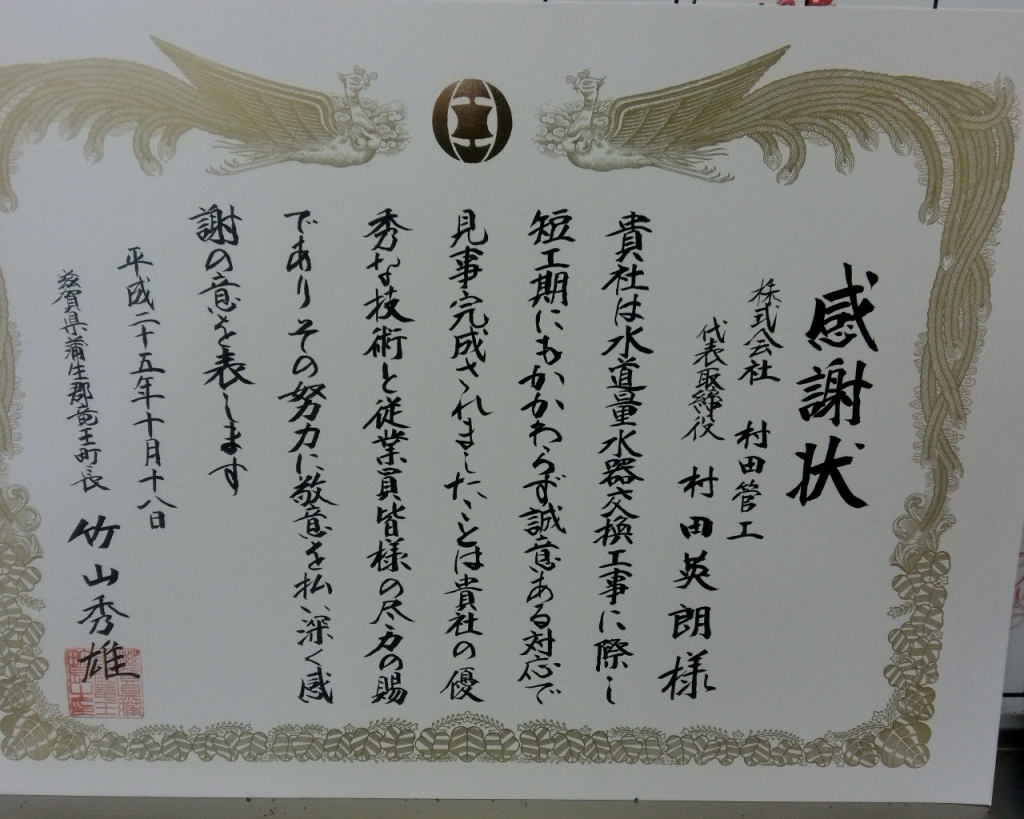 感謝状
株式会社 村田管工
代表取締役 村田英朗様
貴社は水道量水器交換工事に際し
短工期にもかかわらず誠意ある対応で
見事完成されましたことは貴社の優
秀な技術と従業員皆様の尽力の賜
でありその努力に敬意を払い深く感
謝の意を表します
平成二十五年十月十八日
滋賀県蒲生郡竜王町長 竹山秀雄